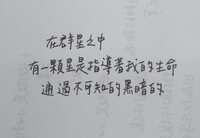 在群星之中
有一顆星是指導著我的生命
通過不可知的黑暗的